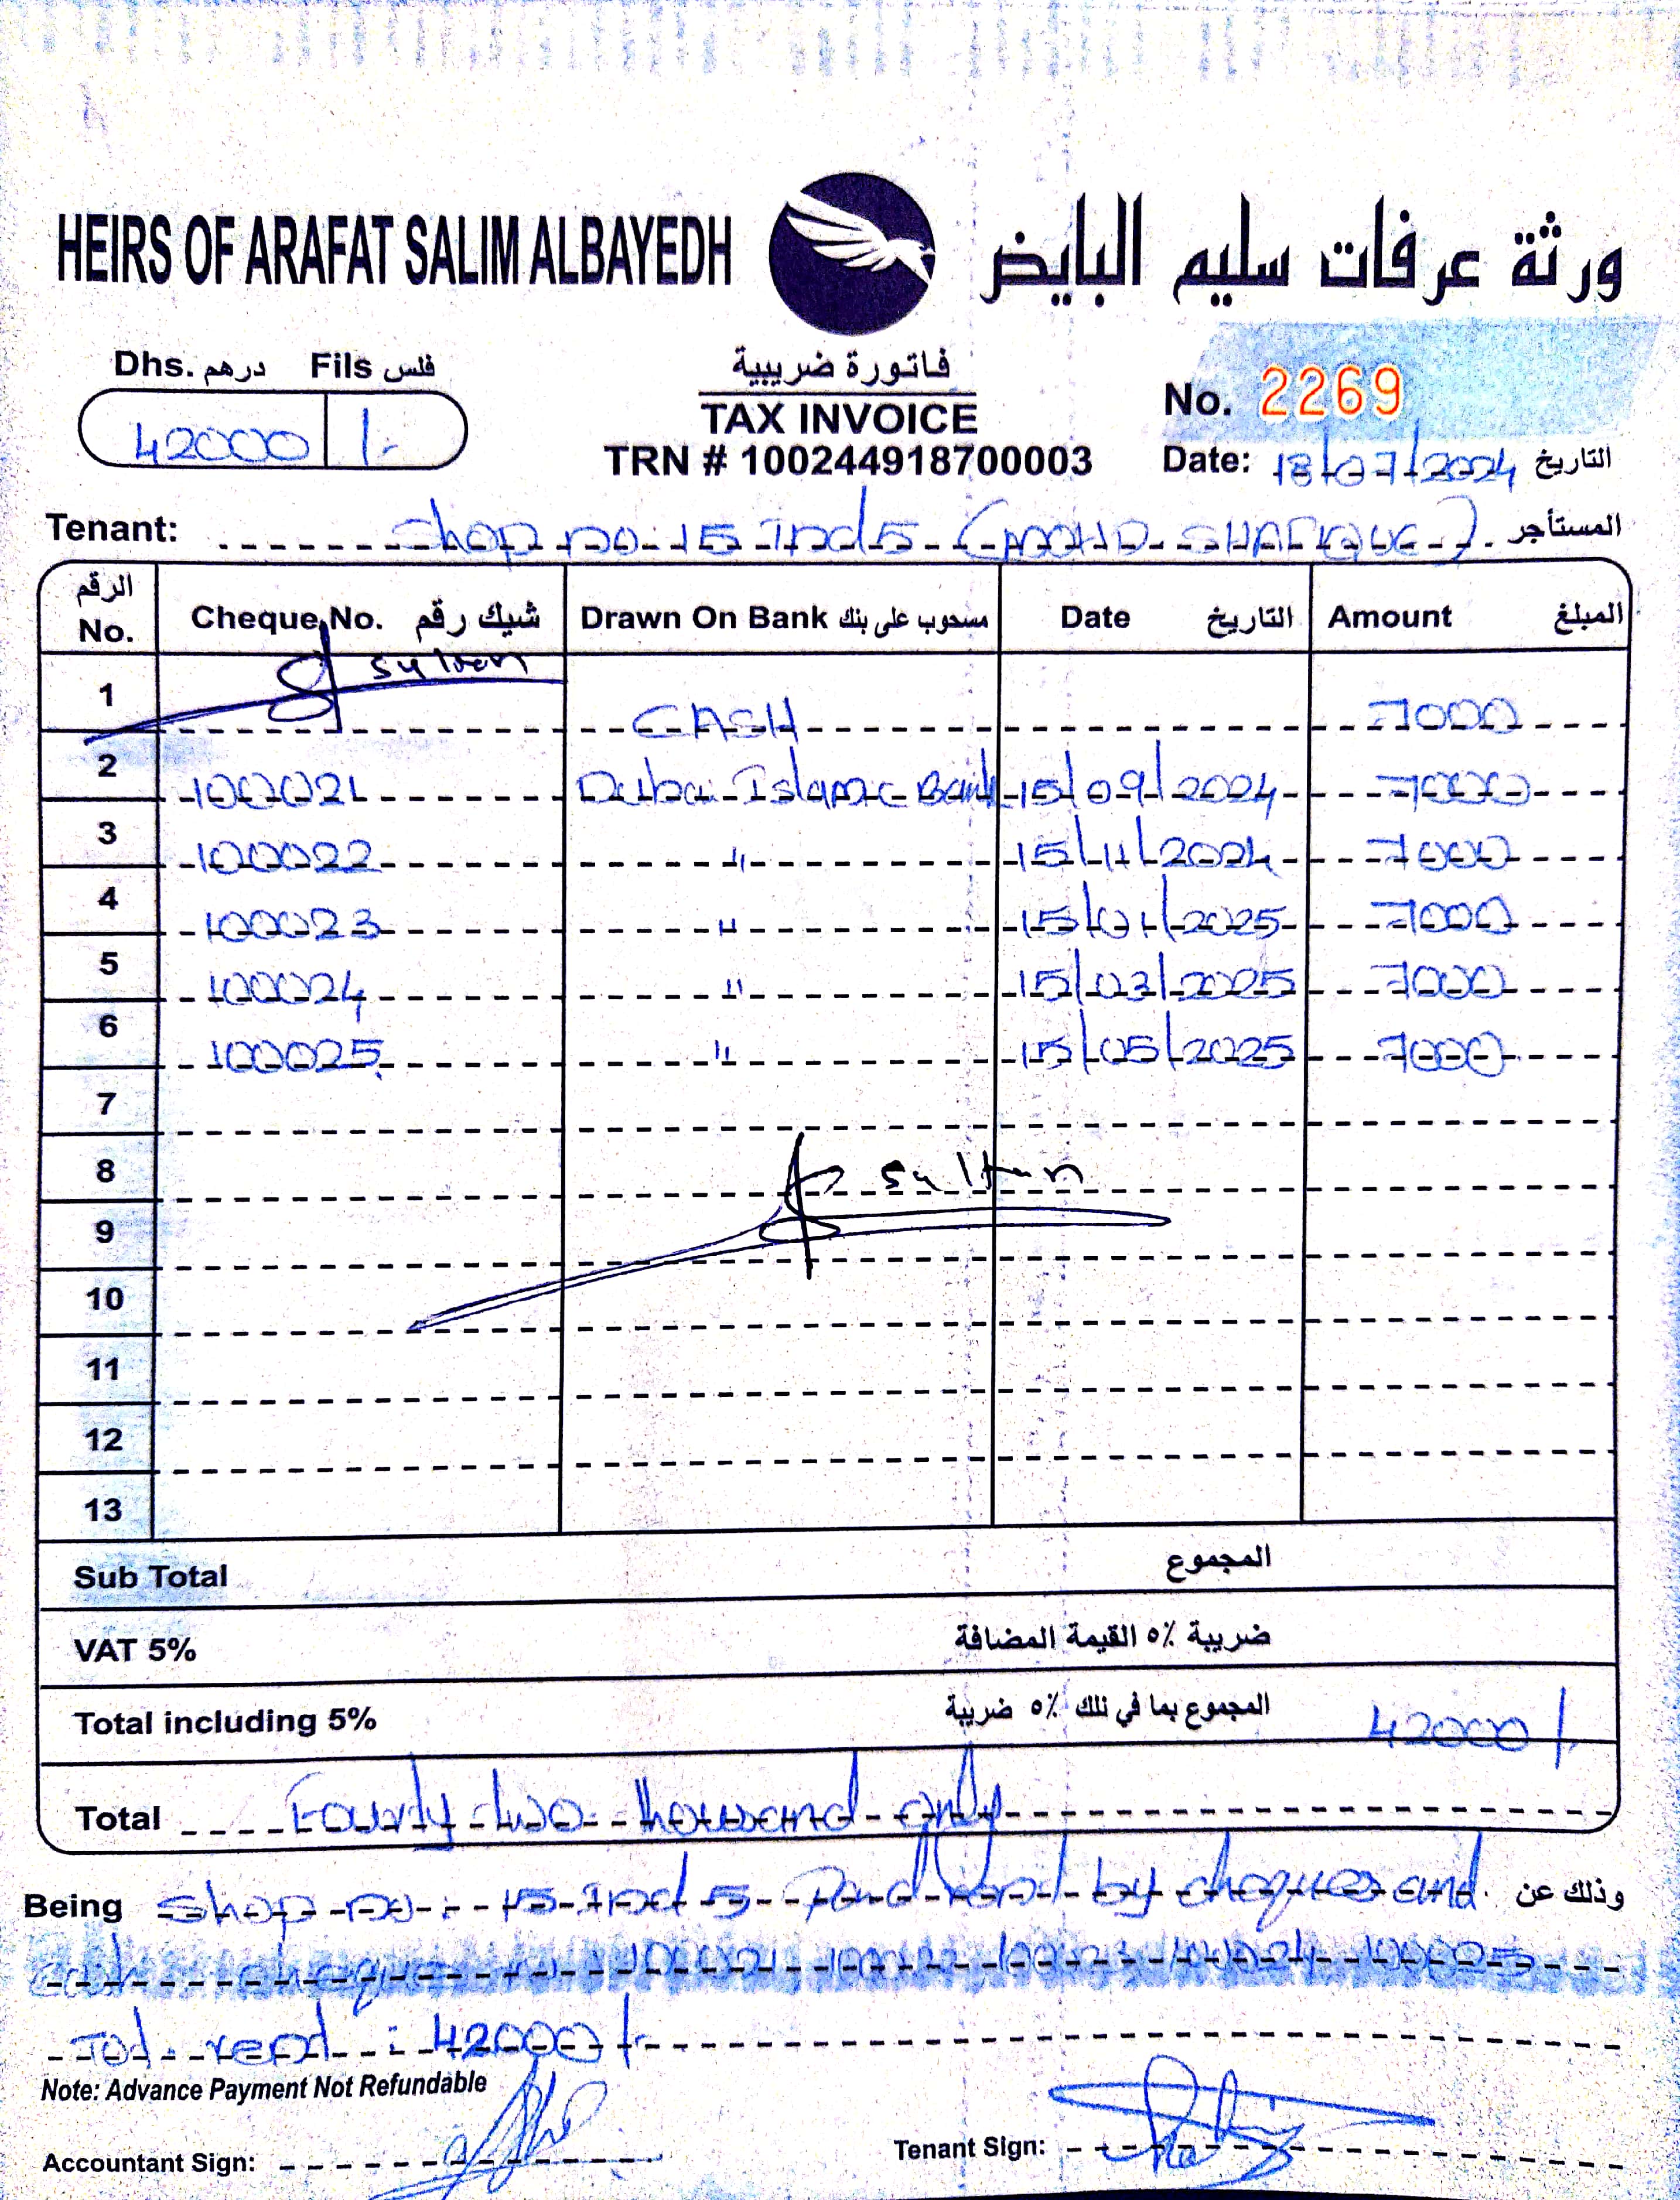 HEIRS OF ARAFAT SALIM ALBAYEDH ورثة عرفات سليم البايض
Dhs. درهم Fils فلس
42000 /-
فاتورة ضريبية
TAX INVOICE
TRN # 100244918700003
No. 2269
Date: 18/07/2024 التاريخ
Tenant: Shop no 15 Ind 5 (MOHD SHAFIQUE) المستأجر
الرقم No. Cheque No. شيك رقم Drawn On Bank مسحوب على بنك Date التاريخ Amount المبلغ
sultan
1 CASH 7000
2 100021 Dubai Islamic Bank 15/09/2024 7000
3 100022 " 15/11/2024 7000
4 100023 " 15/01/2025 7000
5 100024 " 15/03/2025 7000
6 100025 " 15/05/2025 7000
7
8 sultan
9
10
11
12
13
Sub Total المجموع
VAT 5% ضريبة ٥٪ القيمة المضافة
Total including 5% المجموع بما في ذلك ٥٪ ضريبة 42000/-
Total Fourty two thousand only
Being Shop no: 15 Ind 5 rent by cheques and وذلك عن
cash cheque 100021 100022 100023 100024 100025
: 42000/-
Note: Advance Payment Not Refundable
Accountant Sign: Tenant Sign: